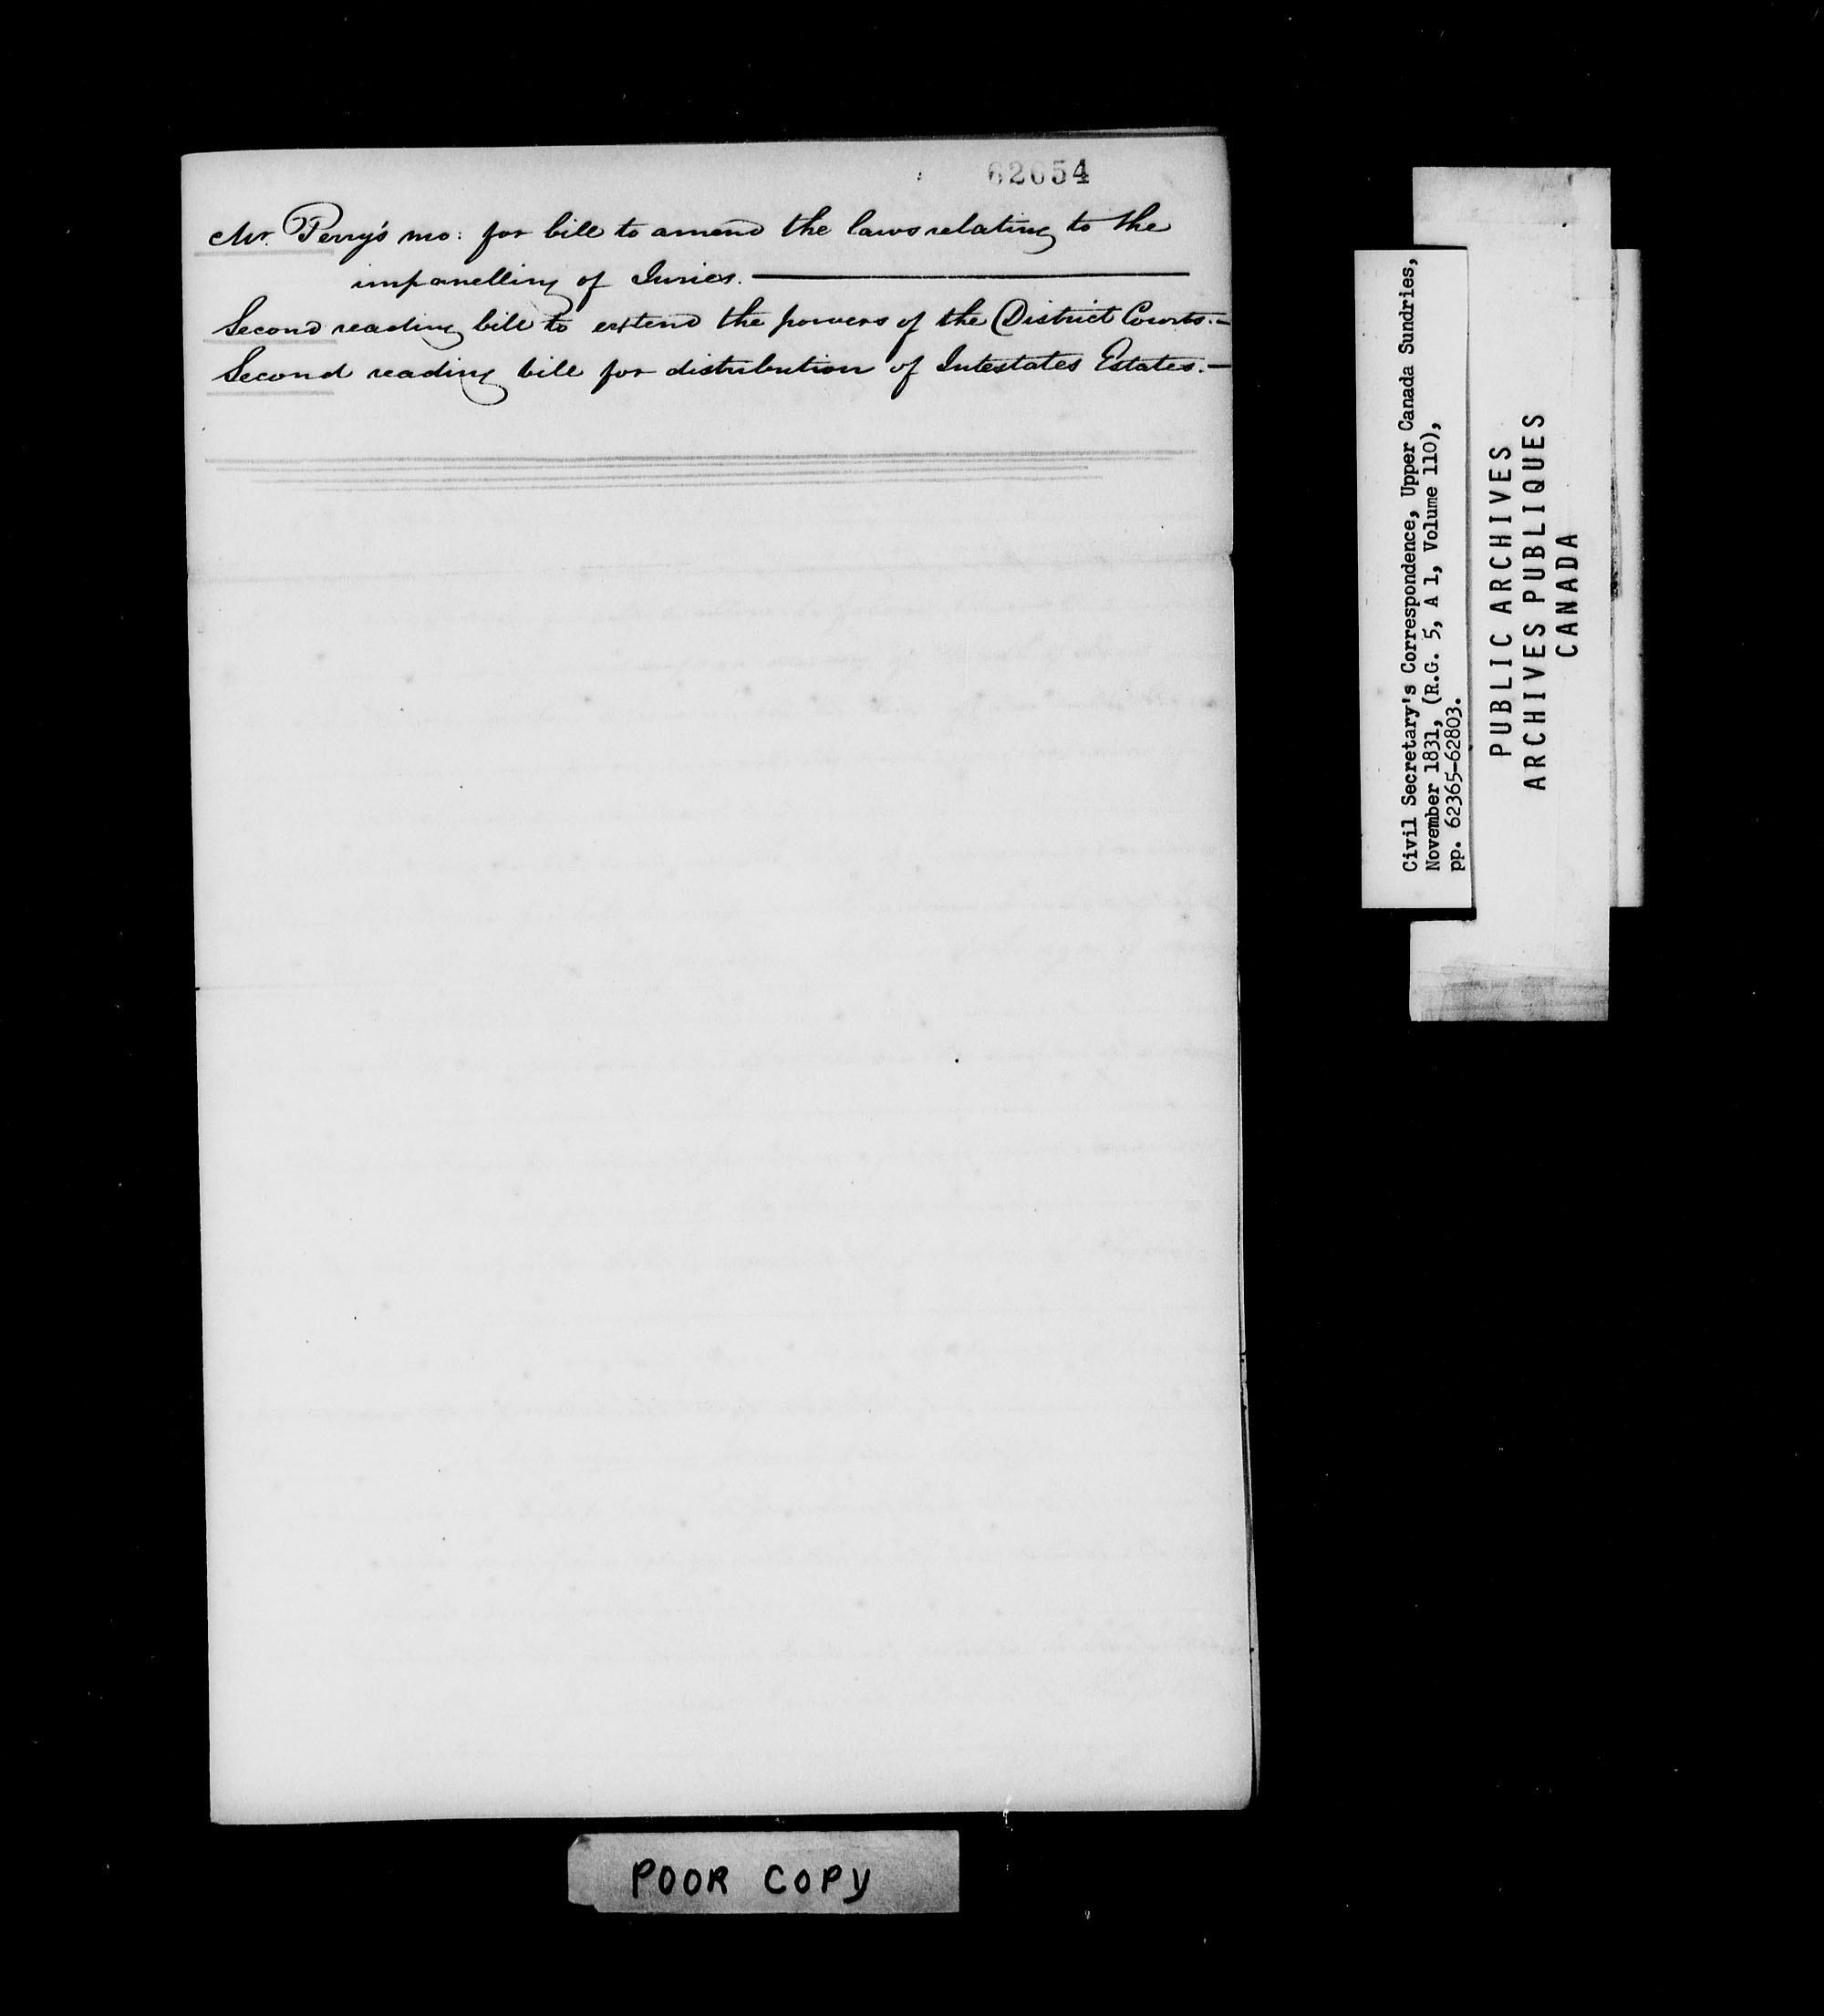 62654
Mr. Perry's mo: for bill to amend the laws relating to the
impanelling of Juries.
Second reading bill to extend the powers of the District Courts.—
Second reading bill for distribution of Intestates Estates.—
Civil Secretary's Correspondence, Upper Canada Sundries,
November 1831, (R.G. 5, A 1, Volume 110),
pp. 62365-62803.
PUBLIC ARCHIVES
ARCHIVES PUBLIQUES
CANADA
POOR COPY